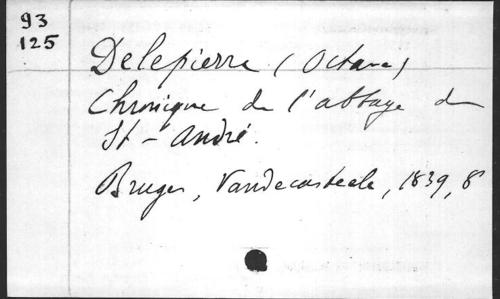 93
125
Delepierre (Octave)
Chronique de l'abbaye de
St-André.
Bruges, Vandecasteele, 1839, 8°